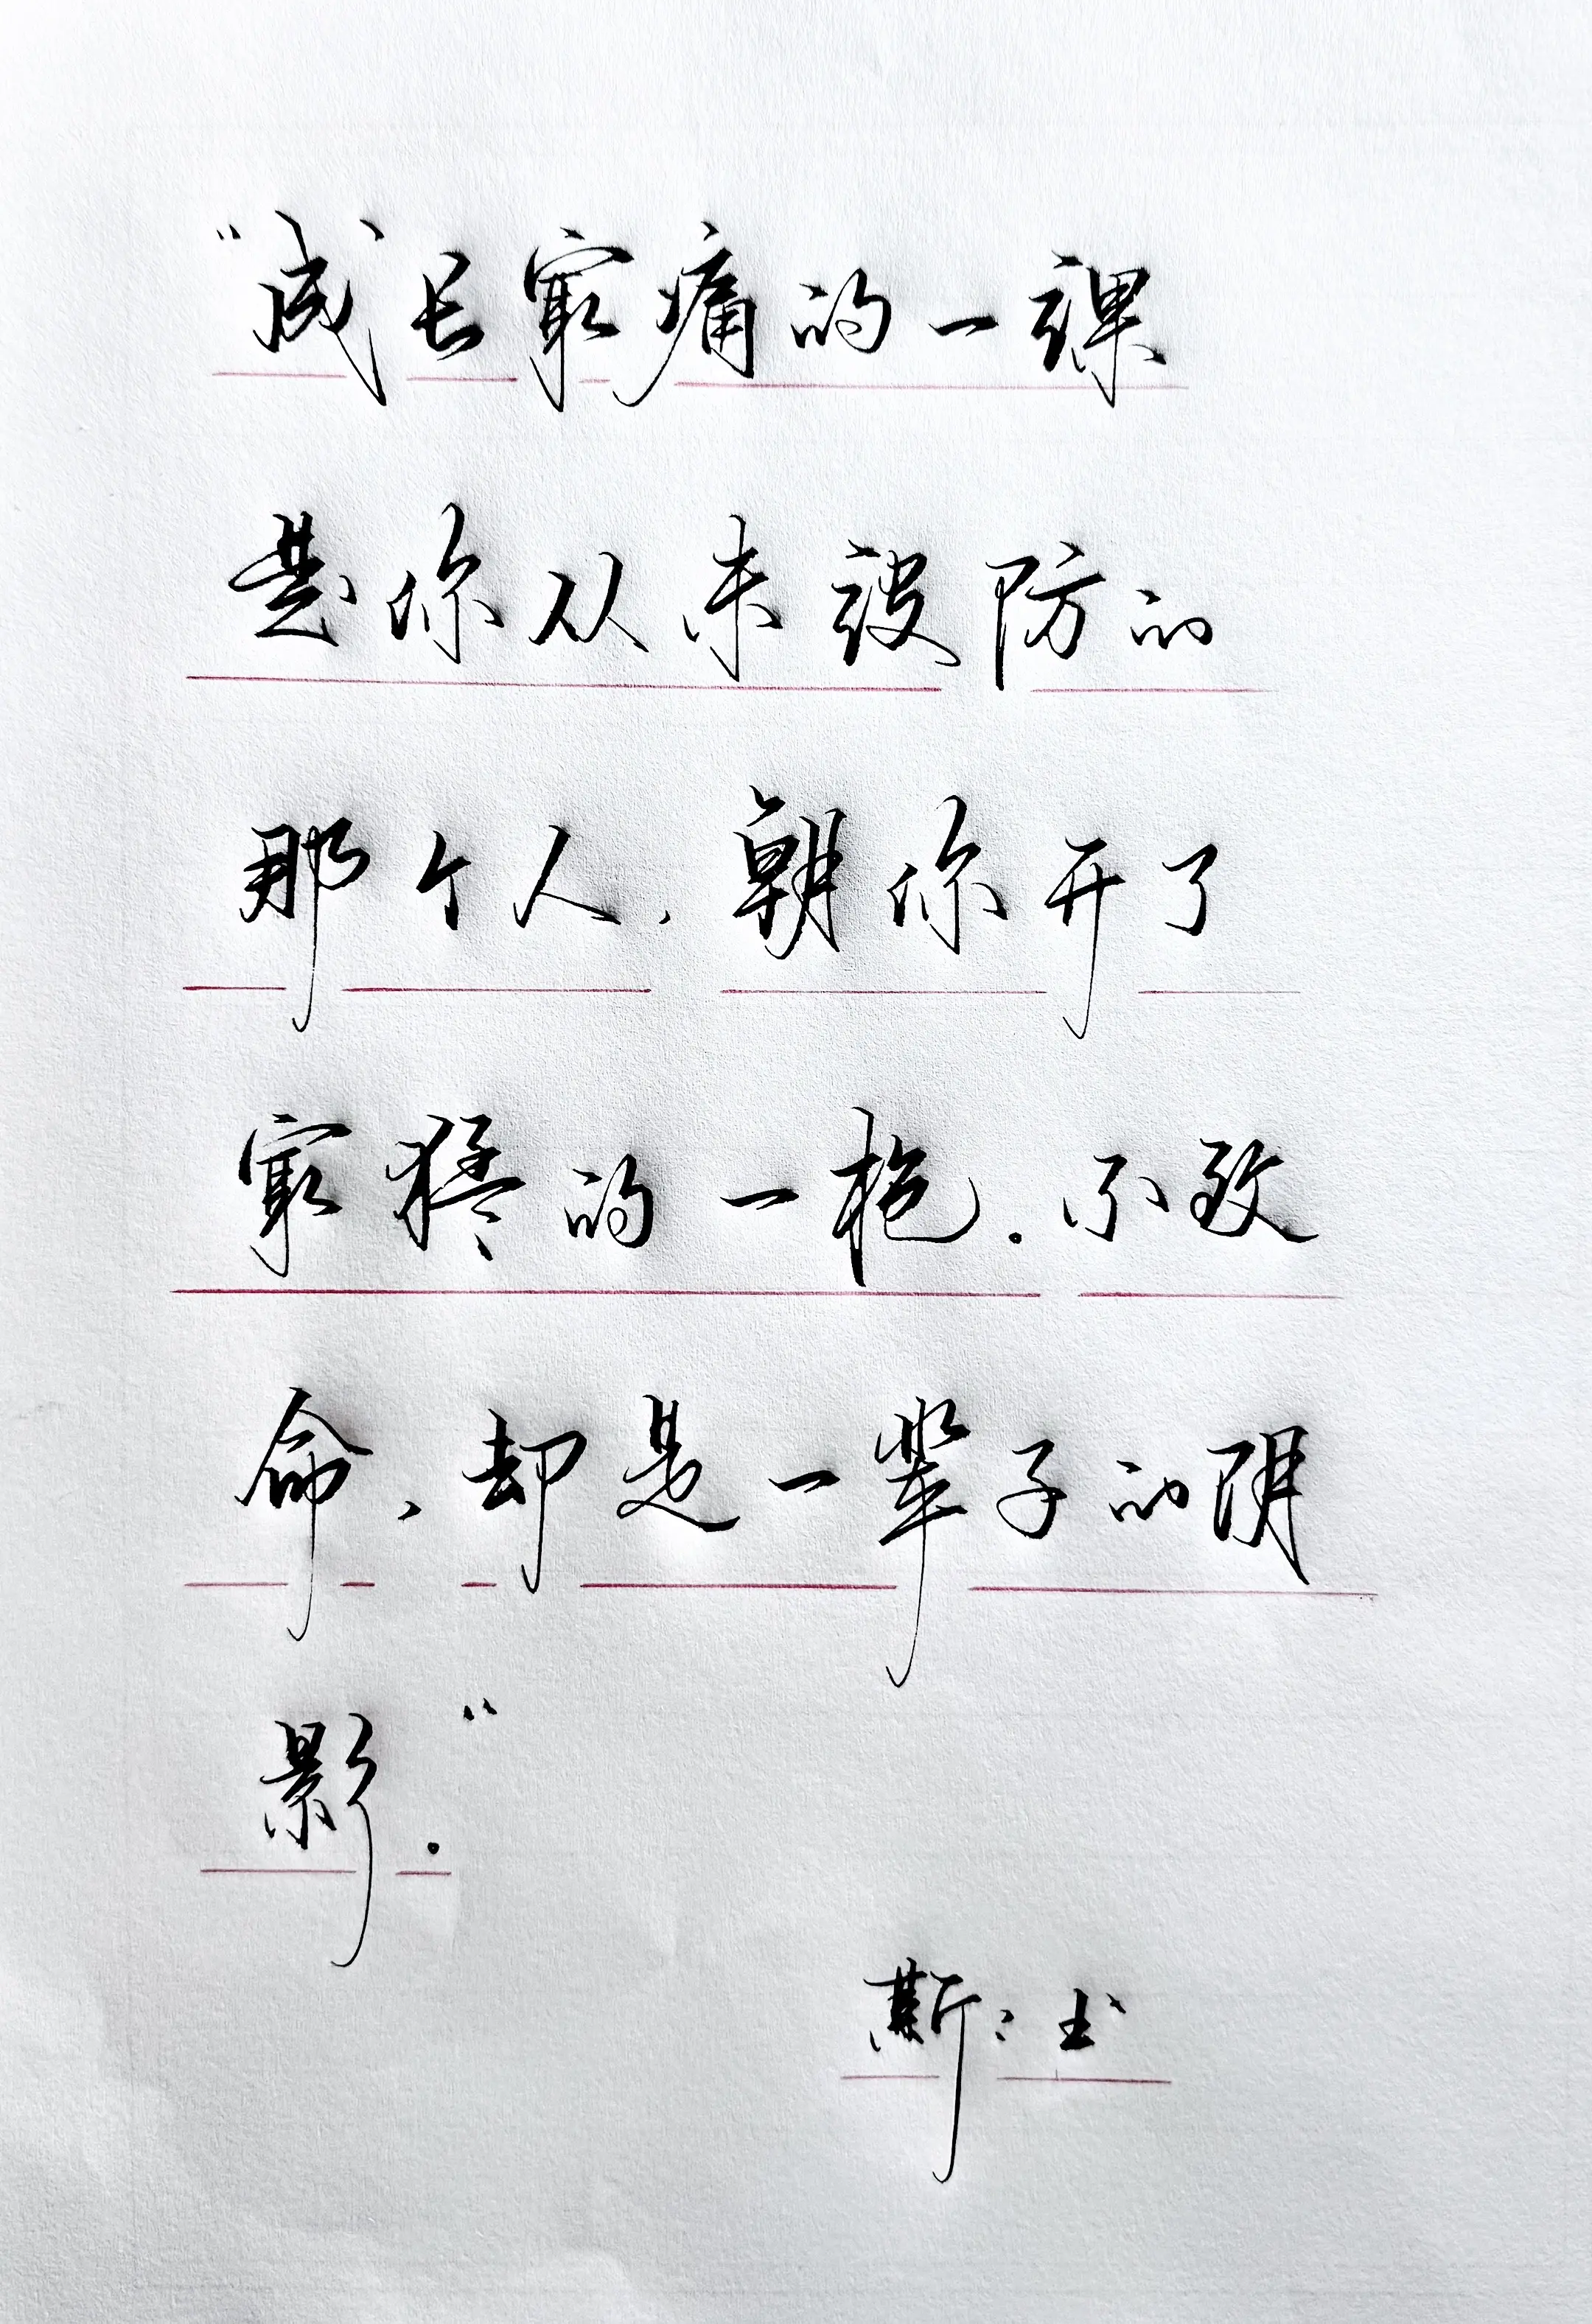 “成长最痛的一课
是你从未设防的
那个人,朝你开了
最猛的一枪.不致
命、却是一辈子的阴
影.”
斯:书